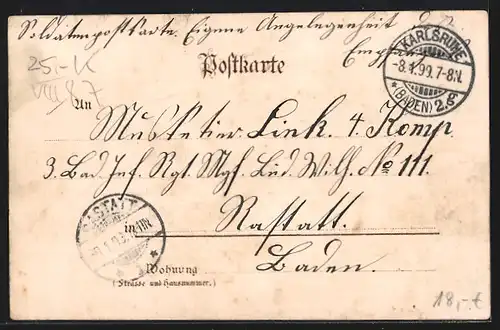 Soldatenpostkarte. Eigene Angelegenheit d.
Empfängers
25,-K
Postkarte
KARLSRUHE
-8.1.99.7-8N.
*(BADEN) 2.g
An
Musketier Link. 4. Komp.
3. Bad. Inf. Rgt. Mgf. Lud. Wilh. No 111.
RASTATT
in
Rastatt.
Baden.
Wohnung
(Strasse und Hausnummer.)
18,-€